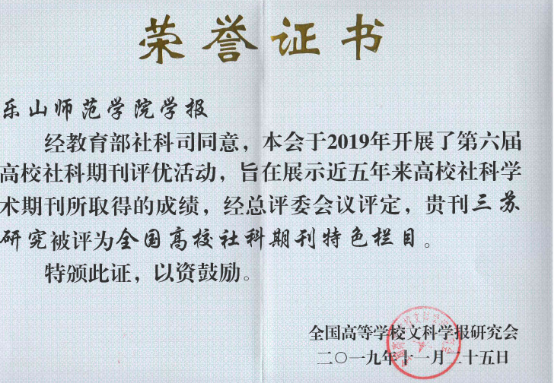 荣誉证书
乐山师范学院学报
经教育部社科司同意，本会于2019年开展了第六届
高校社科期刊评优活动，旨在展示近五年来高校社科学
术期刊所取得的成绩，经总评委会议评定，贵刊三苏
研究被评为全国高校社科期刊特色栏目。
特颁此证，以资鼓励。
全国高等学校文科学报研究会
二〇一九年十一月二十五日